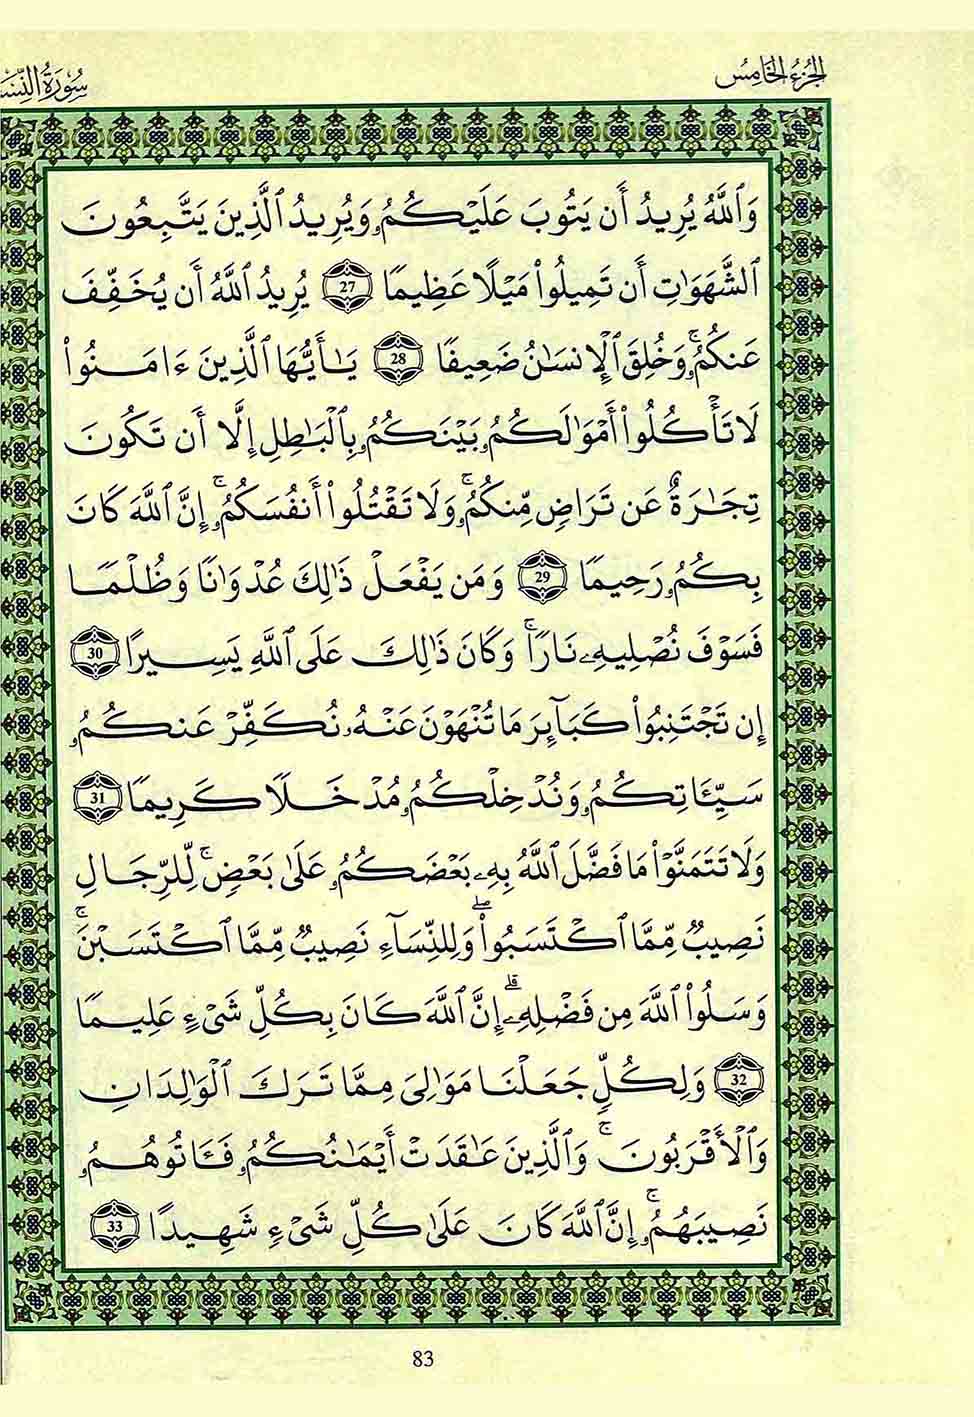 الجُزْءُ الخَامِسُ
سُورَةُ النِّسَ
وَٱللَّهُ يُرِيدُ أَن يَتُوبَ عَلَيْكُمُۥ وَيُرِيدُ ٱلَّذِينَ يَتَّبِعُونَ
ٱلشَّهَوَٰتِ أَن تَمِيلُوا۟ مَيْلًا عَظِيمًا 27 يُرِيدُ ٱللَّهُ أَن يُخَفِّفَ
عَنكُمُۥۚ وَخُلِقَ ٱلْإِنسَٰنُ ضَعِيفًا 28 يَٰٓأَيُّهَا ٱلَّذِينَ ءَامَنُوا۟
لَا تَأْكُلُوا۟ أَمْوَٰلَكُمُۥ بَيْنَكُمُۥ بِٱلْبَٰطِلِ إِلَّا أَن تَكُونَ
تِجَٰرَةٌ عَن تَرَاضٍ مِّنكُمُۥۚ وَلَا تَقْتُلُوا۟ أَنفُسَكُمُۥۚ إِنَّ ٱللَّهَ كَانَ
بِكُمُۥ رَحِيمًا 29 وَمَن يَفْعَلْ ذَٰلِكَ عُدْوَٰنًا وَظُلْمًا
فَسَوْفَ نُصْلِيهِۦ نَارًاۚ وَكَانَ ذَٰلِكَ عَلَى ٱللَّهِ يَسِيرًا 30
إِن تَجْتَنِبُوا۟ كَبَآئِرَ مَا تُنْهَوْنَ عَنْهُۥ نُكَفِّرْ عَنكُمُۥ
سَيِّـَٔاتِكُمُۥ وَنُدْخِلْكُمُۥ مُدْخَلًا كَرِيمًا 31
وَلَا تَتَمَنَّوْا۟ مَا فَضَّلَ ٱللَّهُ بِهِۦ بَعْضَكُمُۥ عَلَىٰ بَعْضٍۚ لِّلرِّجَالِ
نَصِيبٌ مِّمَّا ٱكْتَسَبُوا۟ۖ وَلِلنِّسَآءِ نَصِيبٌ مِّمَّا ٱكْتَسَبْنَۚ
وَسَلُوا۟ ٱللَّهَ مِن فَضْلِهِۦۗ إِنَّ ٱللَّهَ كَانَ بِكُلِّ شَىْءٍ عَلِيمًا
32 وَلِكُلٍّ جَعَلْنَا مَوَٰلِىَ مِمَّا تَرَكَ ٱلْوَٰلِدَانِ
وَٱلْأَقْرَبُونَۚ وَٱلَّذِينَ عَٰقَدَتْ أَيْمَٰنُكُمُۥ فَـَٔاتُوهُمُۥ
نَصِيبَهُمُۥۚ إِنَّ ٱللَّهَ كَانَ عَلَىٰ كُلِّ شَىْءٍ شَهِيدًا 33
83